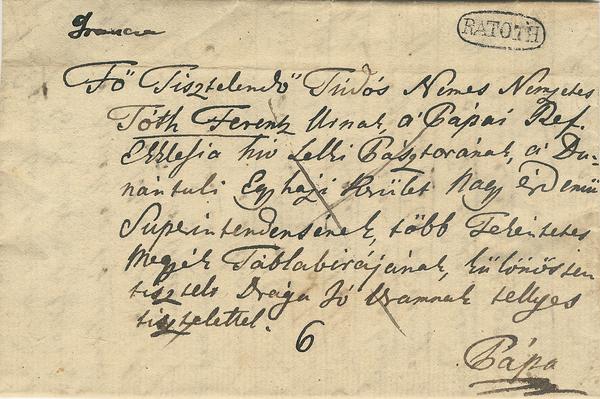 Franco
RATOTH
Fő Tisztelendő Tudós Nemes Nemzetes
Tóth Ferentz Urnak, a' Pápai Ref.
Ekklesia hív Lelki Pásztorának, a' Du-
nántuli Egyházi Kerület Nagy érdemű
Superintendensének, több Tekintetes
Megyék Táblabirájának, különössen
tisztelt Drága Jó Uramnak tellyes
tisztelettel.
6
Pápa